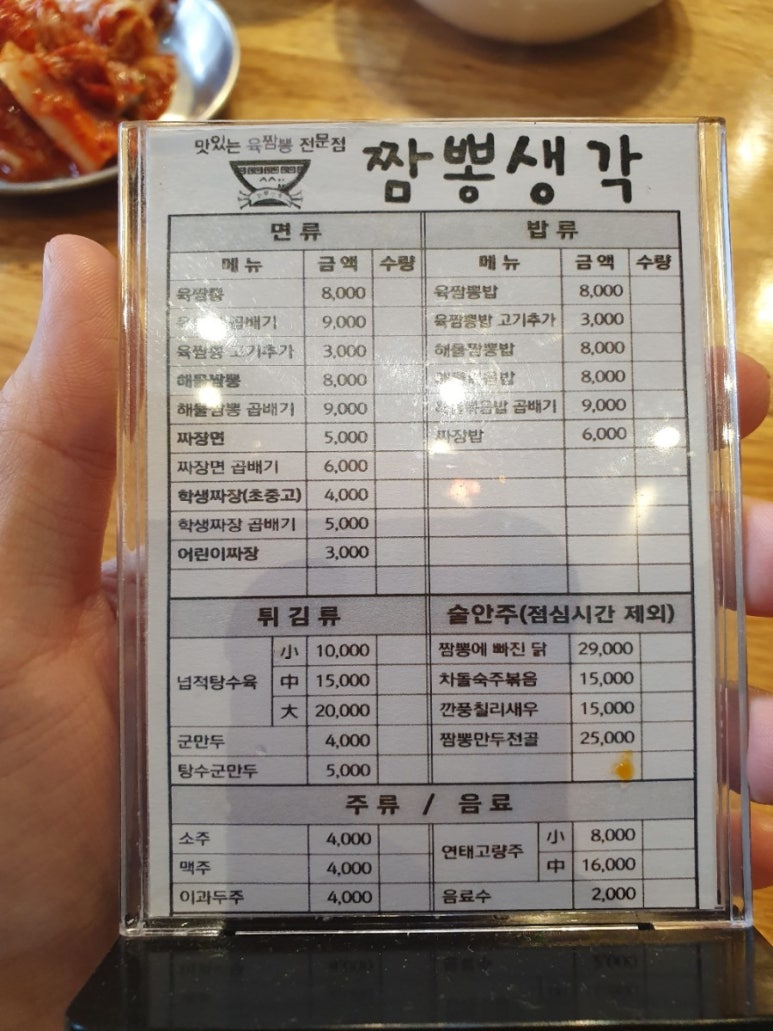 맛있는 육짬뽕 전문점
짬뽕생각
면류
메뉴 금액 수량
육짬뽕 8,000
곱배기 9,000
육짬뽕 고기추가 3,000
해물짬뽕 8,000
해물짬뽕 곱배기 9,000
짜장면 5,000
짜장면 곱배기 6,000
학생짜장(초중고) 4,000
학생짜장 곱배기 5,000
어린이짜장 3,000
밥류
메뉴 금액 수량
육짬뽕밥 8,000
육짬뽕밥 고기추가 3,000
해물짬뽕밥 8,000
8,000
곱배기 9,000
짜장밥 6,000
튀김류
넙적탕수육
小 10,000
中 15,000
大 20,000
군만두 4,000
탕수군만두 5,000
술안주(점심시간 제외)
짬뽕에 빠진 닭 29,000
차돌숙주볶음 15,000
깐풍칠리새우 15,000
짬뽕만두전골 25,000
주류 / 음료
소주 4,000
맥주 4,000
이과두주 4,000
연태고량주
小 8,000
中 16,000
음료수 2,000